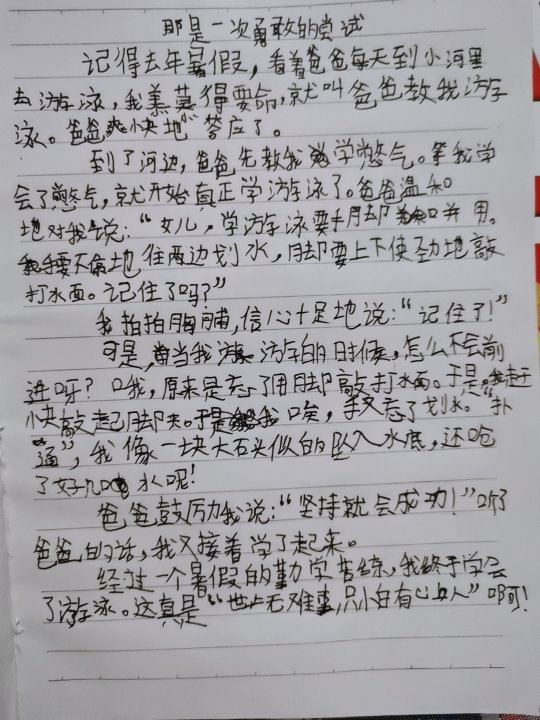 那是一次勇敢的尝试
记得去年暑假，看着爸爸每天到小河里
去游泳，我羡慕得要命，就叫爸爸教我游
泳。爸爸爽快地答应了。
到了河边，爸爸先教我学憋气。等我学
会了憋气，就开始真正学游泳了。爸爸温和
地对我说：“女儿，学游泳要手脚并用。
手要不停地往两边划水，脚要上下使劲地敲
打水面。记住了吗？”
我拍拍胸脯，信心十足地说：“记住了！”
可是，当我游的时候，怎么不会前
进呀？哦，原来是忘了用脚敲打水面。于是，我赶
快敲起脚来。唉，又忘了划水。“扑
通”，我像一块大石头似的坠入水底，还呛
了好几口水呢！
爸爸鼓厉我说：“坚持就会成功！”听了
爸爸的话，我又接着学了起来。
经过一个暑假的勤学苦练，我终于学会
了游泳。这真是“世上无难事，只怕有心人”啊！